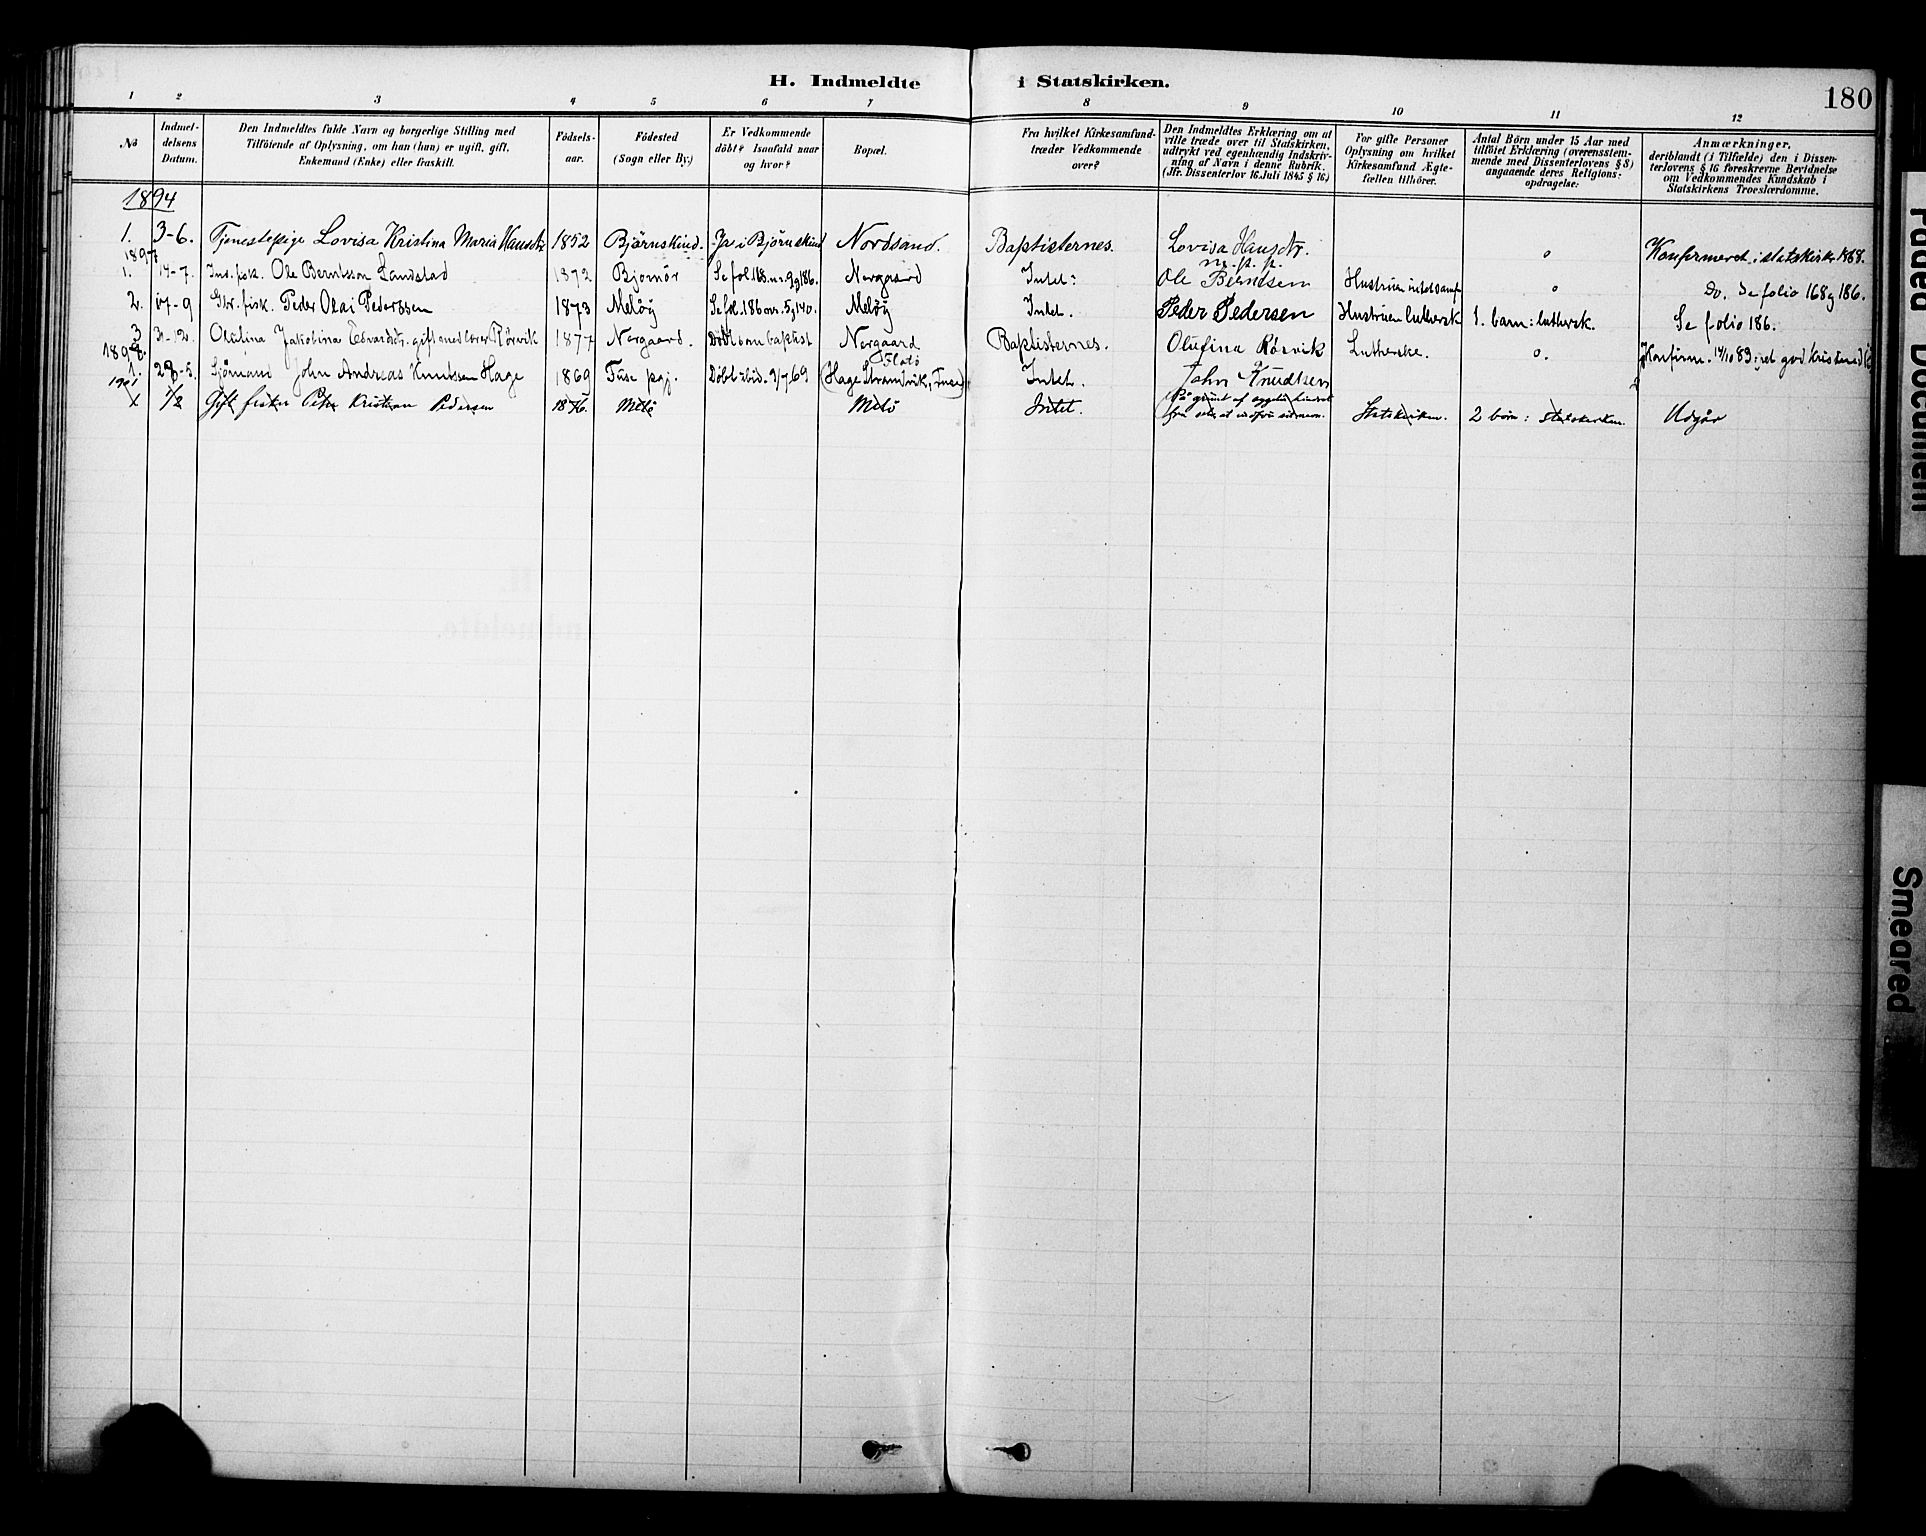 H. Indmeldte i Statskirken.
180
1 2 3 4 5 6 7 8 9 10 11 12
No
Indmeldelsens Datum.
Den Indmeldtes fulde Navn og borgerlige Stilling med
Tilföiende af Oplysning, om han (hun) er ugift, gift,
Enkemand (Enke) eller fraskilt.
Födselsaar.
Födested
(Sogn eller By.)
Er Vedkommende
döbt? Isaafald naar
og hvor?
Bopæl.
Fra hvilket Kirkesamfund
træder Vedkommende
over?
Den Indmeldtes Erklæring om at
ville træde over til Statskirken,
udtrykt ved egenhændig Indskrivning
af Navn i denne Rubrik.
(Jfr. Dissenterlov 16 Juli 1845 § 16.)
For gifte Personer
Oplysning om hvilket
Kirkesamfund Ægtefællen
tilhörer.
Antal Börn under 15 Aar med
tilföiet Erklæring (overensstemmende
med Dissenterlovens § 8)
angaaende deres Religionsopdragelse:
Anmærkninger,
deriblandt (i Tilfælde) den i Dissenterlovens
§ 16 foreskrevne Bevidnelse
om Vedkommendes Kundskab i
Statskirkens Troeslærdomme.
1894
1. 3-6. Tjenestepige Lovisa Kristina Maria Hansdtr 1852 Björnskind. Ja i Björnskind Nordsand. Baptisternes. Lovisa Hansdtr. m. p. p. 0 Konfirmeret i statskirk. 1868.
1897
1. 14-7. Ind. fisk. Ole Berntsson Landstad 1872 Bjornör Se fol. 168. nr. 9 og 186. Norgaard Intet: Ole Berndsen Hustruen intet samf. 0 Do. Se folio 168 og 186.
2. 17-9 Str. fisk. Peder Olai Pederssen 1873 Meløy Se fol. 186 nr. 5 g 140. Meløy Intet. Peder Pedersen Hustruen luthersk 1. barn: luthersk. Se folio 186.
3 31-12. Olufina Jakobina Edvardsdtr. gift med lærer Rörvik 1877 Norgaard. Döbt som baptist Norgaard Baptisternes. Olufina Rørvik Lutherske. 0. Konfirm. 14/10 83; ret god Kristend.
1898.
1. 28-5. Sjömand John Andreas Knutsen Hage 1869 Fuse pgj. Döbt ibid. 9/7 69 Flatö (Hage Strandvik, Fuse) Intet. John Knudtsen
1901
1 1/2 Gift fisker Peter Kristian Pedersen 1876. Melö Melö Intet. På grunt af sygelig hindret fra selv at indföre sit navn. Statskirken. 2 börn: statskirken. Udgår
Faded Document
Smeared